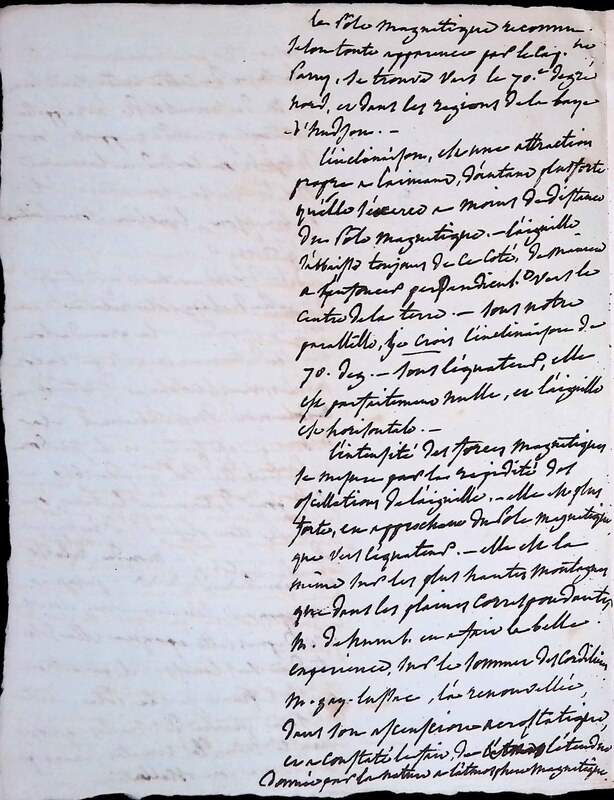 le Pôle magnétique reconnu
selon toute apparence par le Cap.ne
Parry, se trouve vers le 70.e degré
nord, et dans les régions de la baye
d'hudson. —
l'inclinaison, est une attraction
propre a l'aimant, d'autant plus forte
qu'elle s'exerce a moins de distance
du Pôle magnétique. — l'aiguille
s'abaisse toujours de ce Coté, de maniere
a s'enfoncer perpendicul.t vers le
centre de la terre. — sous notre
parallèle, je crois l'inclinaison de
70. deg. — sous l'équateur, elle
est parfaitement nulle, et l'aiguille
est horisontale. —
l'intensité des forces magnétiques
se mesure par la rapidité des
oscillations de l'aiguille. — elle est plus
forte, en approchant du Pôle magnétique,
que vers l'équateur. — elle est la
même sur les plus hautes montagnes
que dans les plaines correspondantes
M. de humb. en a fait la belle
experience, sur le sommet des Cordilieres
M. gay-lussac, l'a renouvellée,
dans son ascension aerostatique
et a constaté le fait, de l'étendue
donnée par la nature a l'atmosphere magnétique.